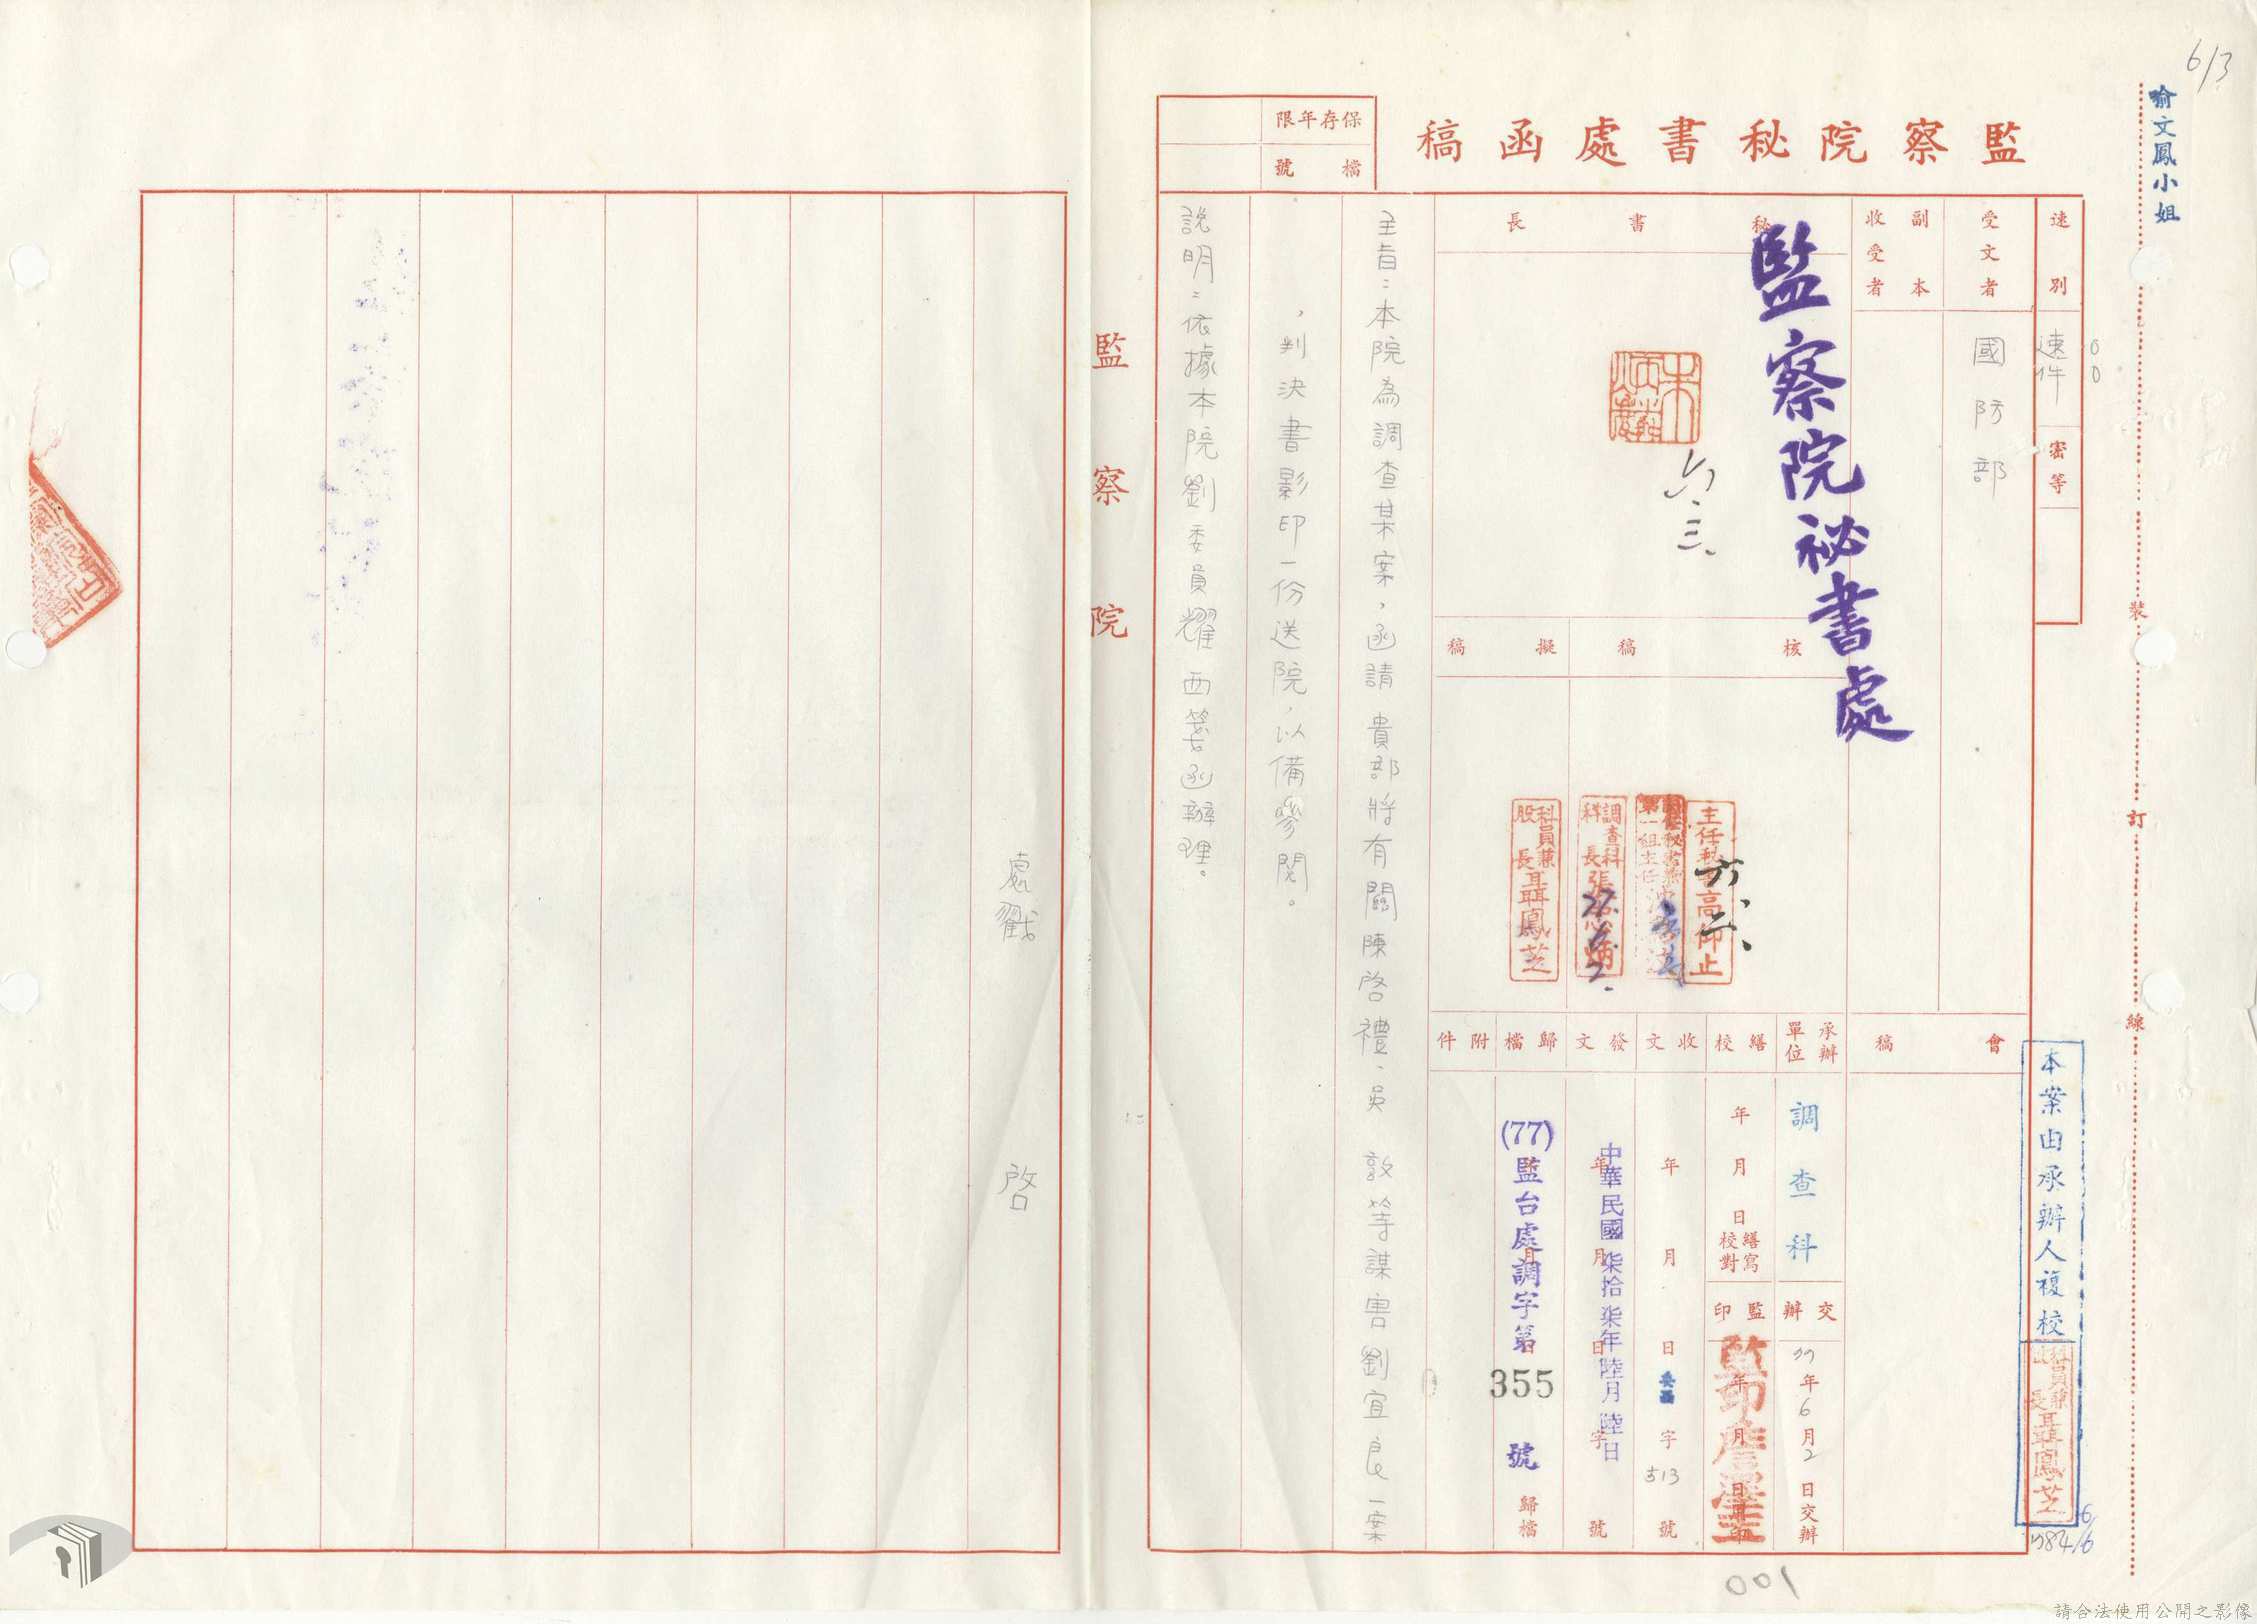 6/3
喻文鳳小姐
監察院秘書處函稿
保存年限
檔號
速別
速件
密等
受文者
國防部
副本收受者
秘書長
監察院祕書處
六.三.
核稿
擬稿
主任秘書高仰止
六、二、
調查科科長張
科員兼股長聶鳳芝
會稿
承辦單位
調查科
交辦
77年6月2日交辦
繕校
年月日繕寫校對
監印
收文
年月日字513號
發文
中華民國柒拾柒年陸月陸日
年月日字號
歸檔
(77)監台處調字第355號
歸檔
附件
本案由承辦人複校
科員兼股長聶鳳芝
主旨：本院為調查某案，函請 貴部將有關陳啓禮、吳敦等謀害劉宜良一案
，判決書影印一份送院，以備參閱。
說明：依據本院劉委員耀西箋函辦理。
監察院
處戳
啓
裝
訂
線
001
請合法使用公開之影像